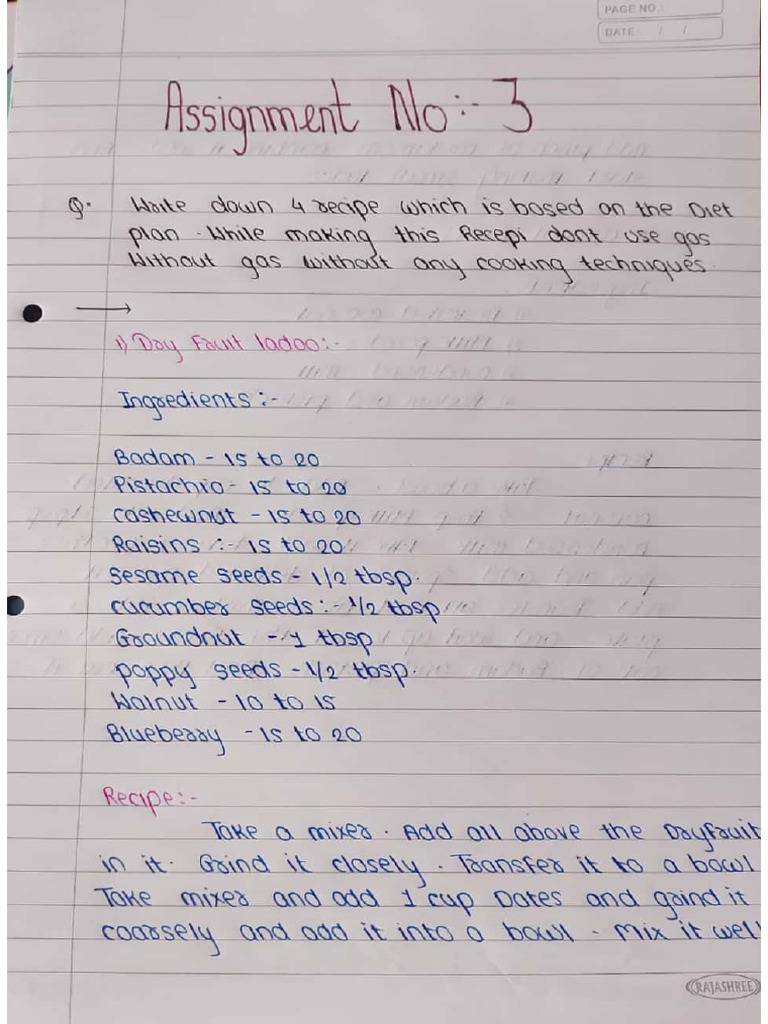 PAGE NO.:
DATE: / /
Assignment No:- 3
Q. Write down 4 recipe which is based on the Diet
plan. While making this Recepi dont use gas
Without gas without any cooking techniques.
→
1) Dry Fruit ladoo:-
Ingredients:-
Badam - 15 to 20
Pistachio - 15 to 20
cashewnut - 15 to 20
Raisins :- 15 to 20
sesame seeds - 1/2 tbsp.
cucumber seeds:- 1/2 tbsp
Groundnut - 1 tbsp
poppy seeds - 1/2 tbsp.
Walnut - 10 to 15
Blueberry - 15 to 20
Recipe:-
Take a mixer. Add all above the Dryfruit
in it. Grind it closely. Transfer it to a bowl
Take mixer and add 1 cup Dates and grind it
coarsely and add it into a bowl. Mix it well
RAJASHREE